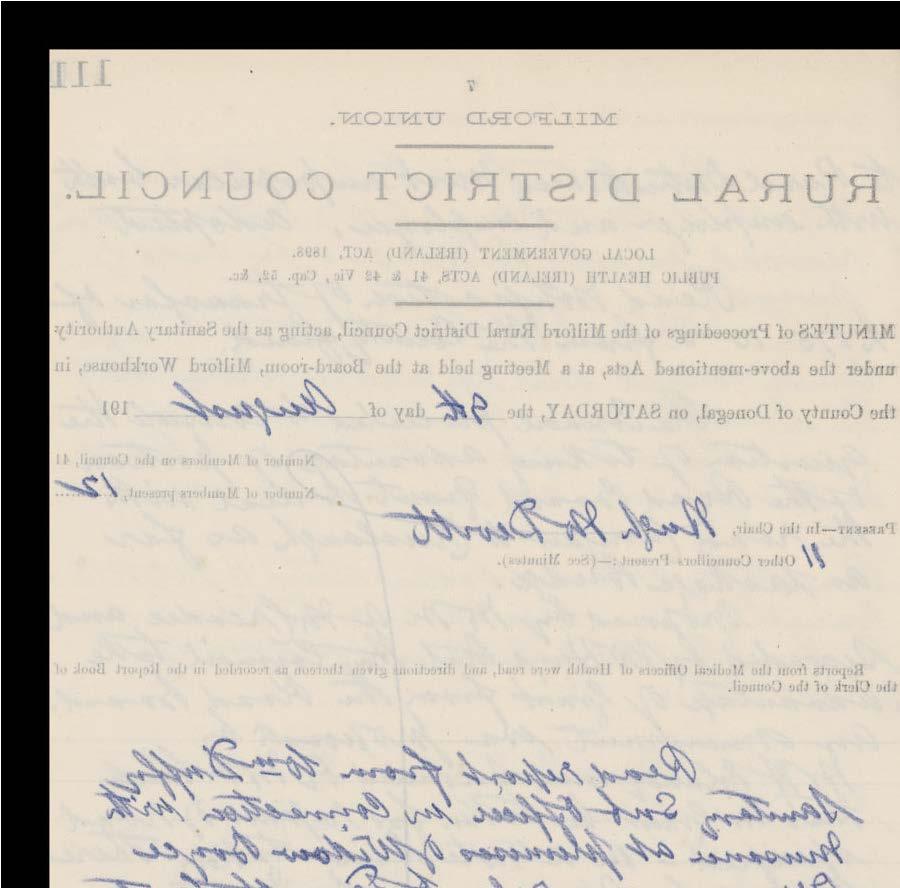 111
7
MILFORD UNION.
RURAL DISTRICT COUNCIL.
LOCAL GOVERNMENT (IRELAND) ACT, 1898.
PUBLIC HEALTH (IRELAND) ACTS, 41 & 42 Vic., Cap. 52, &c.
MINUTES of Proceedings of the Milford Rural District Council, acting as the Sanitary Authority
under the above-mentioned Acts, at a Meeting held at the Board-room, Milford Workhouse, in
the County of Donegal, on SATURDAY, the 9th day of August 191
Number of Members on the Council, 41
Number of Members present, 12
PRESENT—In the Chair, Hugh McDevitt
11 Other Councillors Present:—(See Minutes).
Reports from the Medical Officers of Health were read, and directions given thereon as recorded in the Report Book of
the Clerk of the Council.
Read report from Wm Duffy
Sanitary Sub Officer in connection with
nuisance at premises of Widow Boyce